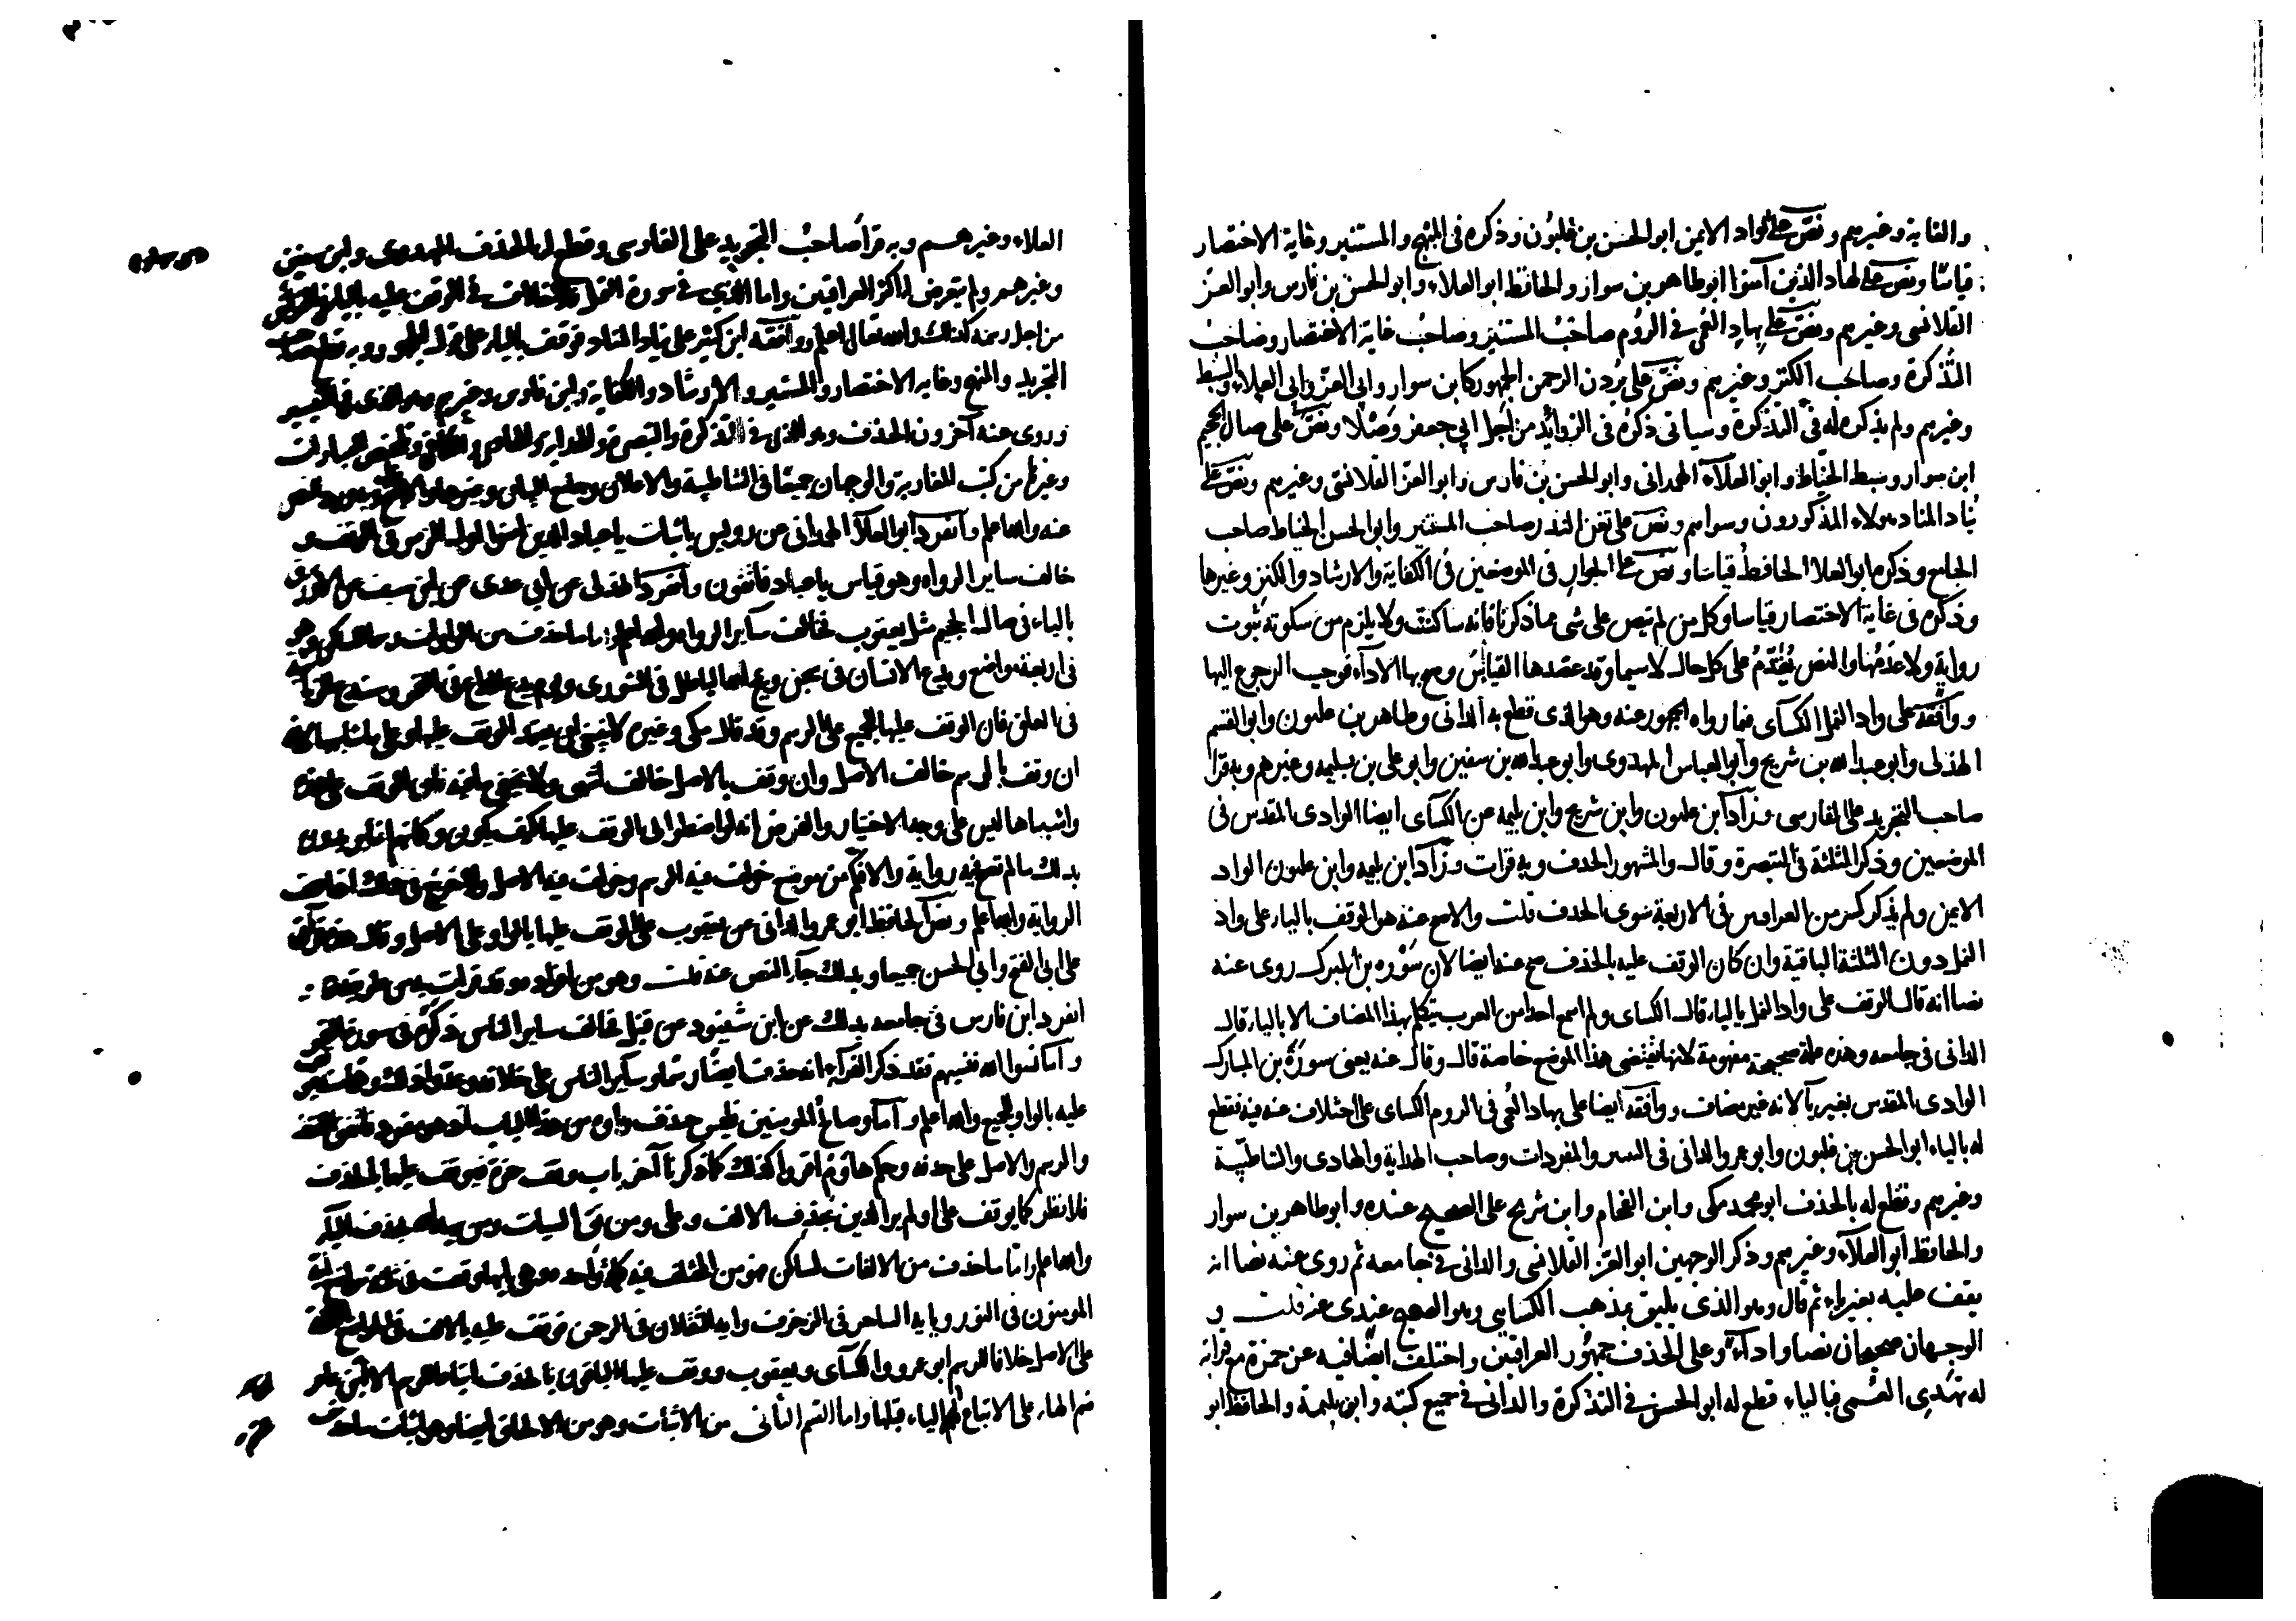 والغاية وغيرهم ونص على الواد الايمن ابو الحسن بن غلبون وذكره فى المبهج والمستنير وغاية الاختصار
قياسا ونص على لهاد الذين آمنوا ابو طاهر بن سوار والحافظ ابو العلاء وابو الحسن بن فارس وابو العز
القلانسى وغيرهم ونص على بهاد العمى فى الروم صاحب المستنير وصاحب غاية الاختصار وصاحب
التذكرة وصاحب الكنز وغيرهم ونص على يردن الرحمن الجمهور كابن سوار وابى العز وابى العلاء والسبط
وغيرهم ولم يذكره له فى التذكرة وسياتى ذكره فى الزوائد من اجل ابى جعفر وصلا ونص على صال الجحيم
ابن سوار وسبط الخياط وابو العلاء الهمدانى وابو الحسن بن فارس وابو العز القلانسى وغيرهم ونص على
يناد المناد هولاء المذكورون وسواهم ونص على تغن النذر صاحب المستنير وابو الحسن الخياط صاحب
الجامع وذكره ابو العلا الحافظ قياسا ونص على الجوار فى الموضعين فى الكفاية والارشاد والكنز وغيرها
وذكره فى غاية الاختصار قياسا وكل من لم ينص على شى مما ذكرنا فانه ساكت ولا يلزم من سكوته ثبوت
رواية ولا عدمها والنص يقدم على كل حال لا سيما وقد عضدها القياس وصح بها الاداء فوجب الرجوع اليها
ووافقه على واد النمل الكسآى فيما رواه الجمهور عنه وهو الذى قطع به الدانى وطاهر بن غلبون وابو القسم
الهذلى وابو عبد الله بن شريح وابو العباس المهدوى وابو عبد الله بن سفين وابو على بن بليمه وغيرهم وبه قرا
صاحب التجريد على الفارسى وزاد ابن غلبون وابن شريح وابن بليمه عن الكسآى ايضا الوادى المقدس فى
الموضعين وذكر الثلثة فى التبصرة وقال والمشهور الحذف وبه قرات وزاد ابن بليمه وابن غلبون الواد
الايمن ولم يذكر كثير من العراقيين فى الاربعة سوى الحذف قلت والاصح عنه هو الوقف بالياء على واد
النمل دون الثلثة الباقية وان كان الوقف عليه بالحذف صح عنه ايضا لان سوره بن المبرك روى عنه
نصا انه قال الوقف على واد النمل بالياء قال الكساى ولم اسمع احدا من العرب يتكلم بهذا المضاف الا بالياء قال
الدانى فى جامعه وهذه علة صحيحة مفهومة لانها تقتضى هذا الموضع خاصة قال وقال عنه يعنى سورة بن المبارك
الوادى المقدس بغير يآ لانه غير مضاف ووافقه ايضا على بهاد العمى فى الروم الكساى على اختلاف عنه فيه فقطع
له بالياء ابو الحسن بن غلبون وابو عمرو الدانى فى التيسر والمفردات وصاحب الهداية والهادى والشاطبية
وغيرهم وقطع له بالحذف ابو محمد مكى وابن الفحام وابن شريح على الصحيح عنده وابو طاهر بن سوار
والحافظ ابو العلاء وغيرهم وذكر الوجهين ابو العز القلانسى والدانى فى جامعه ثم روى عنه نصا انه
يقف عليه بغير ياء ثم قال وهو الذى يليق بمذهب الكساى وهو الصحيح عندى عنه قلت و
الوجهان صحيحان نصا واداء وعلى الحذف جمهور العراقيين واختلف ايضا فيه عن حمزة مع قرائه
له تهدى العمى فبالياء قطع له ابو الحسن فى التذكرة والدانى فى جميع كتبه وابن بليمة والحافظ ابو
العلاء وغيرهم وبه قرا صاحب التجريد على الفارسى وقطع له بالحذف المهدوى وابن سفين
وغيرهم ولم يتعرض له اكثر العراقيين واما الذى فى سورة النمل فلا خلاف فى الوقف عليه بالياء
من اجل رسمه كذلك والله تعالى اعلم ووافقه ابن كثير على يناد المناد فوقف بالياء على قول الجمهور وبه قطع صاحب
التجريد والمبهج وغاية الاختصار والمستنير والارشاد والكفاية وابن فارس وغيرهم وهو الذى فى التيسير
وروى عنه آخرون الحذف وهو الذى فى التذكرة والتبصرة والهداية والهادى والكافى وتلخيص العبارات
وغيرها من كتب المغاربة والوجهان جميعا فى الشاطبية والاعلان وجامع البيان وغيرها والاول اصح وبه ورد النص
عنه والله اعلم وانفرد ابو العلا الهمدانى عن رويس باثبات يا عباد الذين امنوا اول الزمر فى الوقف و
خالف ساير الرواه وهو قياس يا عباد فاتقون وانفرد الهذلى عن ابى عدى عن ابن سيف عن الازرق
بالياء فى صال الجحيم مثل يعقوب فخالف ساير الرواه والله اعلم واما ما حذف من الواوات رسما للساكن وهو
فى اربعة مواضع ويدع الانسان فى سبحن ويمح الله الباطل فى الشورى ويوم يدع الداع فى القمر وسندع الزبانية
فى العلق فان الوقف عليها للجميع على الرسم وقد قال مكى وغيره لا ينبغى ان يتعمد الوقف عليها ولا على ما شابهها لانه
ان وقف بالرسم خالف الاصل وان وقف بالاصل خالف الرسم ولا يخفى ما فيه فان الوقف على هذه
واشباهها ليس على وجه الاختيار والغرض انه لو اضطر الى الوقف عليها كيف يكون وكانهم انما يريدون
بذلك ما لم تصح فيه رواية والا فكم من موضع خولف فيه الرسم وخولف فيه الاصل ولا حرج فى ذلك اذا صحت
الرواية والله اعلم ونص الحافظ ابو عمرو الدانى عن يعقوب على الوقف عليها بالواو على الاصل وقال هذه قراتى
على ابى الفتح وابى الحسن جميعا وبذلك جآ النص عنه قلت وهو من انفراده وقد قرات به من طريقه
انفرد ابن فارس فى جامعه بذلك عن ابن شنبوذ عن قنبل فخالف ساير الناس ذكره فى سورة القمر
واما نسوا الله فنسيهم فقد ذكر الفرآ انه حذفت ايضا رسما وساير الناس على خلافه
عليه بالواو للجميع والله اعلم واما وصالح المومنين فليس حذف واوه من هذا الباب اذ هو مفرد فاتفق اللفظ
والرسم والاصل على حذفه وحكم هاوم اقروا كذلك كما ذكرنا آخر باب وقف حمزة فيوقف عليها بالحذف
فلا نظر كما يوقف على اولم ير الذين بحذف الالف وعلى ومن تق السيات ومن يهد الله بحذف الياء
والله اعلم واما ما حذف من الالفات لساكن فهو من المختلف فيه كلمة واحده وهى ايها وقعت فى ثلثة مواضع ايه
المومنون فى النور ويا يه الساحر فى الزخرف وايه الثقلان فى الرحمن فوقف عليها بالالف فى المواضع الثلثة
على الاصل خلافا للرسم ابو عمرو والكسآى ويعقوب ووقف عليها الباقون بالحذف اتباعا للرسم الا ان ابن عامر
ضم الهاء على الاتباع لضم الياء قبلها واما القسم الثانى من الاثبات وهو من الالحاق ايضا وهو اثبات ما حذف